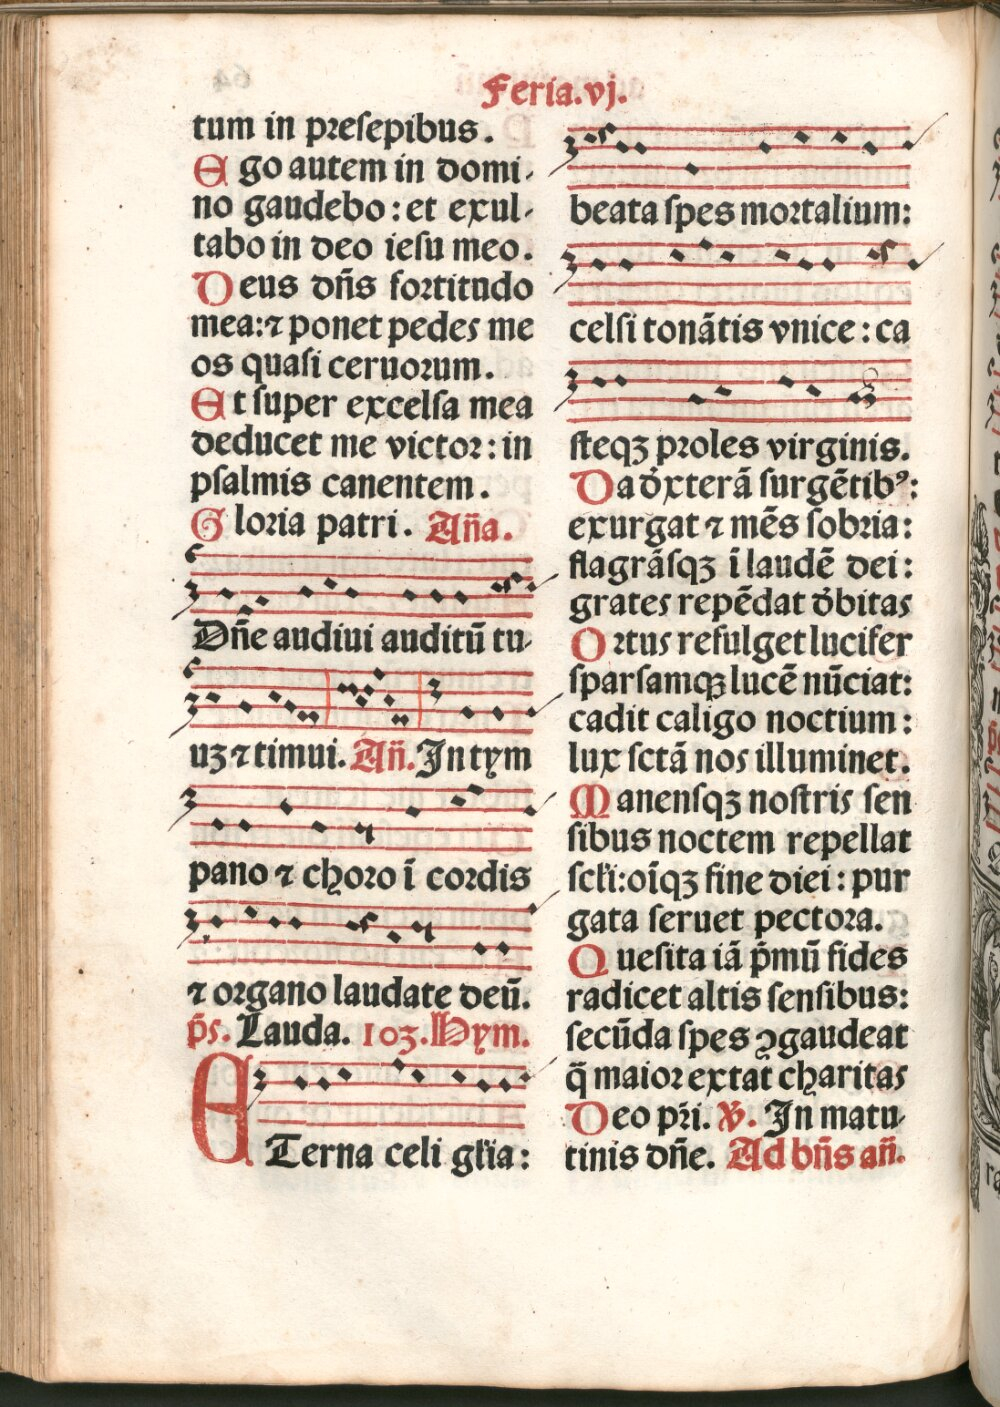 Feria.vj.
tum in presepibus.
Ego autem in domi-
no gaudebo: et exul-
tabo in deo iesu meo.
Deus dñs fortitudo
mea: ⁊ ponet pedes me
os quasi ceruorum.
Et super excelsa mea
deducet me victor: in
psalmis canentem.
Gloria patri. Aña.
Dñe audiui auditū tu-
uꝫ ⁊ timui. Añ. In tym
pano ⁊ choro ī cordis
⁊ organo laudate deū.
p̄s. Lauda. 103. Hym.
ETerna celi gl'ia:
beata spes mortalium:
celsi tonātis vnice: ca
steqꝫ proles virginis.
Da dʼxterā surgētibꝰ:
exurgat ⁊ mēs sobria:
flagrāsqꝫ ī laudē dei:
grates repēdat dʼbitas
Ortus refulget lucifer
sparsamqꝫ lucē nūciat:
cadit caligo noctium:
lux sctā nos illuminet.
Manensqꝫ nostris sen
sibus noctem repellat
scl'i: oīqꝫ fine diei: pur
gata seruet pectora.
Quesita iā p̄mū fides
radicet altis sensibus:
secūda spes ꝯgaudeat
q̄ maior extat charitas
Deo pr̄i. ℣. In matu-
tinis dñe. Ad bñs añ.